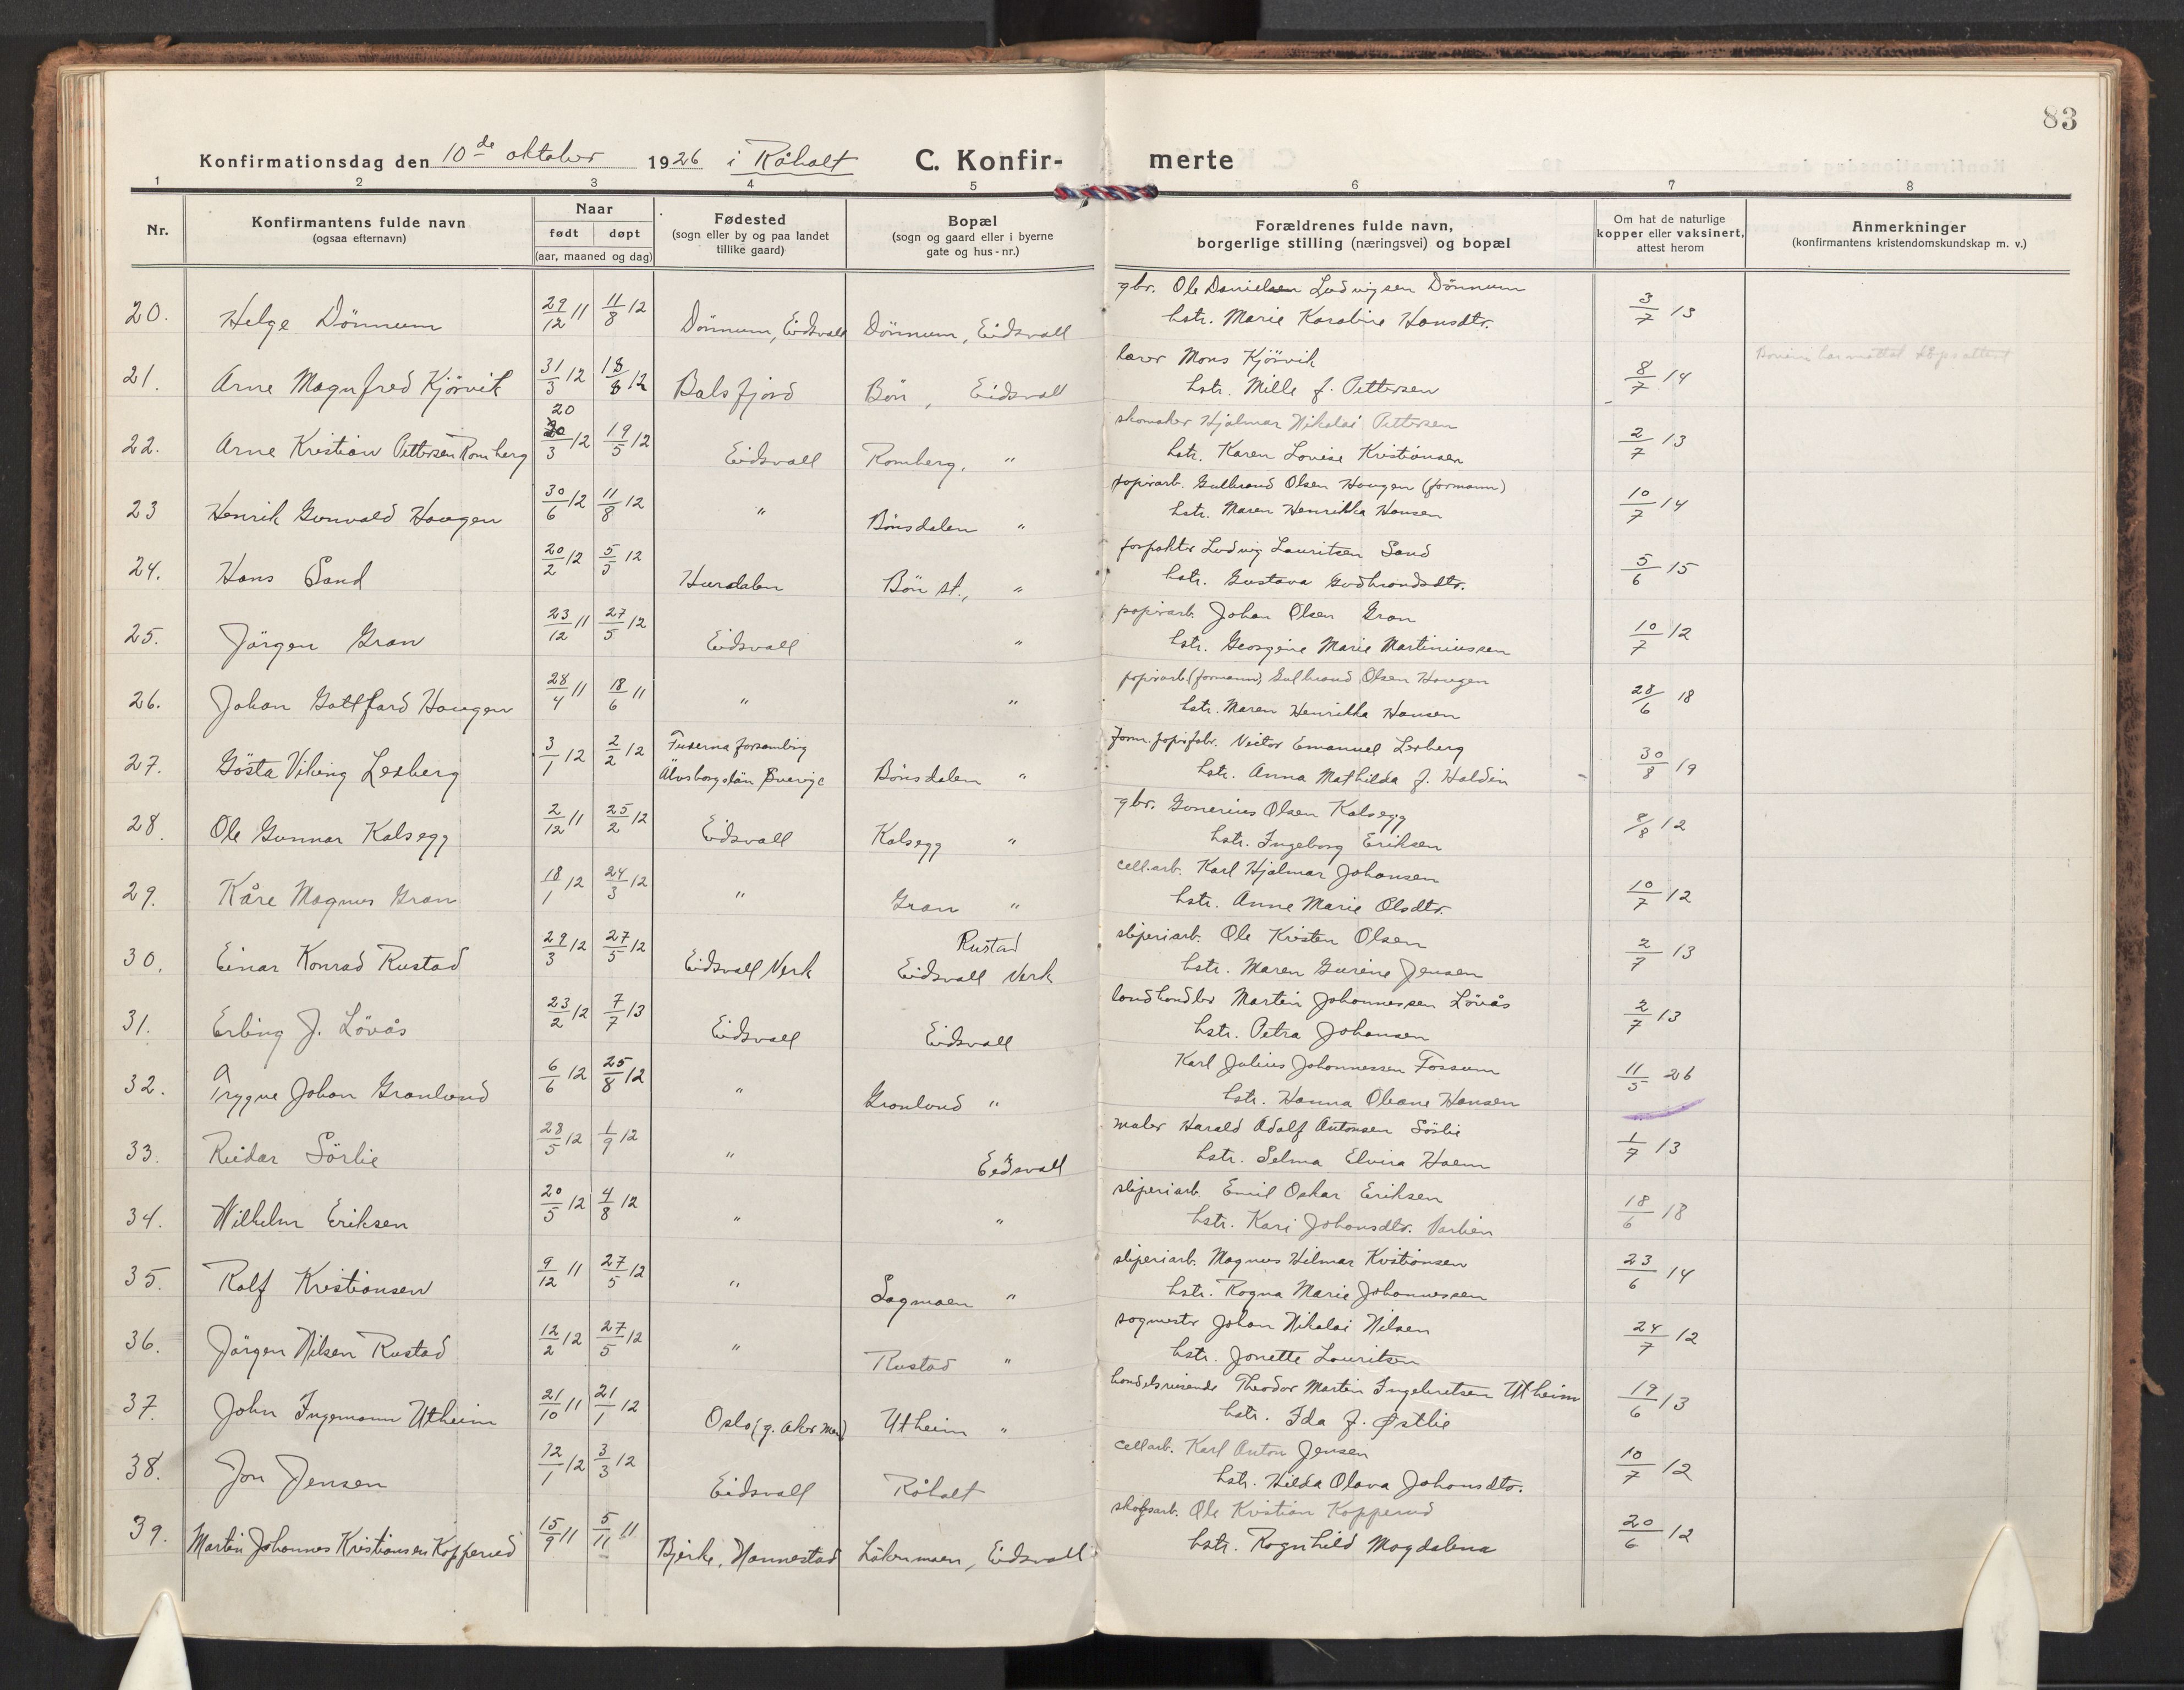 83
Konfirmationsdag den 10de oktober 1926 i Råholt C. Konfir- merte
1 2 3 4 5 6 7 8
Nr. Konfirmantens fulde navn (ogsaa efternavn) Naar født døpt (aar, maaned og dag) Fødested (sogn eller by og paa landet tillike gaard) Bopæl (sogn og gaard eller i byerne gate og hus-nr.) Forældrenes fulde navn, borgerlige stilling (næringsvei) og bopæl Om hat de naturlige kopper eller vaksinert, attest herom Anmerkninger (konfirmantens kristendomskundskap m. v.)
gbr. Ole Danielsen Ludvigsen Dönnum
20. Helge Dönnum 29/12 11 11/8 12 Dönnum, Eidsvall Dönnum, Eidsvall hstr. Marie Karoline Hansdtr. 3/7 13
lærer Mons Kjörvik
21. Arne Magnfred Kjörvik 31/3 12 18/8 12 Balsfjord Bön, Eidsvall hstr. Mille f. Pettersen 8/7 14
skomaker Hjalmar Nikolai Pettersen
22. Arne Kristian Pettersen Romberg 20/3 12 19/5 12 Eidsvall Romberg, " hstr. Karen Lovise Kristiansen 2/7 13
papirarb. Gulbrand Olsen Haugen (formann)
23 Henrik Gunvald Haugen 30/6 12 11/8 12 " Bönsdalen " hstr. Maren Henrikka Hansen 10/7 14
forpakter Ludvig Lauritsen Sand
24. Hans Sand 20/2 12 5/5 12 Hurdalen Bön st., " hstr. Gustava Gudbrandsdtr. 5/6 15
papirarb. Johan Olsen Gran
25. Jörgen Gran 23/12 11 27/5 12 Eidsvall " hstr. Georgine Marie Martiniussen 10/7 12
papirarb. (formann) Gulbrand Olsen Haugen
26. Johan Gottfard Haugen 28/4 11 18/6 11 " " hstr. Maren Henrikka Hansen 28/6 18
Fuxerna forsamling form. papirfabr. Victor Emanuel Lexberg
27. Gösta Viking Lexberg 3/1 12 2/2 12 Älvsborgslän Sverige Bönsdalen " hstr. Anna Mathilda f. Haldin 30/8 19
gbr. Gunerius Olsen Kalsegg
28. Ole Gunnar Kalsegg 2/12 11 25/2 12 Eidsvall Kalsegg " hstr. Ingeborg Eriksen 8/8 12
cell.arb. Karl Hjalmar Johansen
29. Kåre Magnus Gran 18/1 12 24/3 12 " Gran " hstr. Anne Marie Olsdtr. 10/7 12
Rustad sliperiarb. Ole Kristen Olsen
30. Einar Konrad Rustad 29/3 12 27/5 12 Eidsvall Verk Eidsvall Verk hstr. Maren Gurine Jensen 2/7 13
landhandler Martin Johannessen Lövås
31. Erling J. Lövås 23/2 12 7/7 13 Eidsvall Eidsvall hstr. Petra Johansen 2/7 13
Karl Julius Johannessen Fossum
32. Trygve Johan Granlund 6/6 12 25/8 12 " Granlund " hstr. Hanna Oleane Hansen 11/5 26
maler Harald Adolf Antonsen Sörlie
33. Reidar Sörlie 28/5 12 1/9 12 " Eidsvall hstr. Selma Elvira Haem 1/7 13
sliperiarb. Emil Oskar Eriksen
34. Wilhelm Eriksen 20/5 12 4/8 12 " " hstr. Kari Johansdtr. 18/6 18
sliperiarb. Magnus Hilmar Kristiansen
35. Rolf Kristiansen 9/12 11 27/5 12 " Sagmoen " hstr. Ragna Marie Johannessen 23/6 14
sagmester Johan Nikolai Nilsen
36. Jörgen Nilsen Rustad 12/2 12 27/5 12 " Rustad " hstr. Jonette Lauritsen 24/7 12
handelsreisende Theodor Martin Ingebretsen Utheim
37. John Ingemann Utheim 21/10 11 21/1 12 Oslo (g. Aker men) Utheim " hstr. Ida f. Østlie 19/6 13
cellarb. Karl Anton Jensen
38. Jon Jensen 12/1 12 3/3 12 Eidsvall Råholt hstr. Hilda Olava Johansdtr. 10/7 12
skogsarb. Ole Kristian Kopperud
39. Martin Johannes Kristiansen Kopperud 15/9 11 5/11 11 Bjerke, Nannestad Låkenmoen, Eidsvall hstr. Ragnhild Magdalena 20/6 12